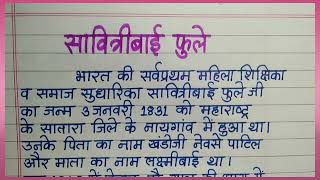 सावित्रीबाई फुले
भारत की सर्वप्रथम महिला शिक्षिका
व समाज सुधारिका सावित्रीबाई फुले जी
का जन्म 3 जनवरी 1831 को महाराष्ट्र
के सातारा जिले के नायगाँव में हुआ था।
उनके पिता का नाम खंडोजी नेवसे पाटिल
और माता का नाम लक्ष्मीबाई था।